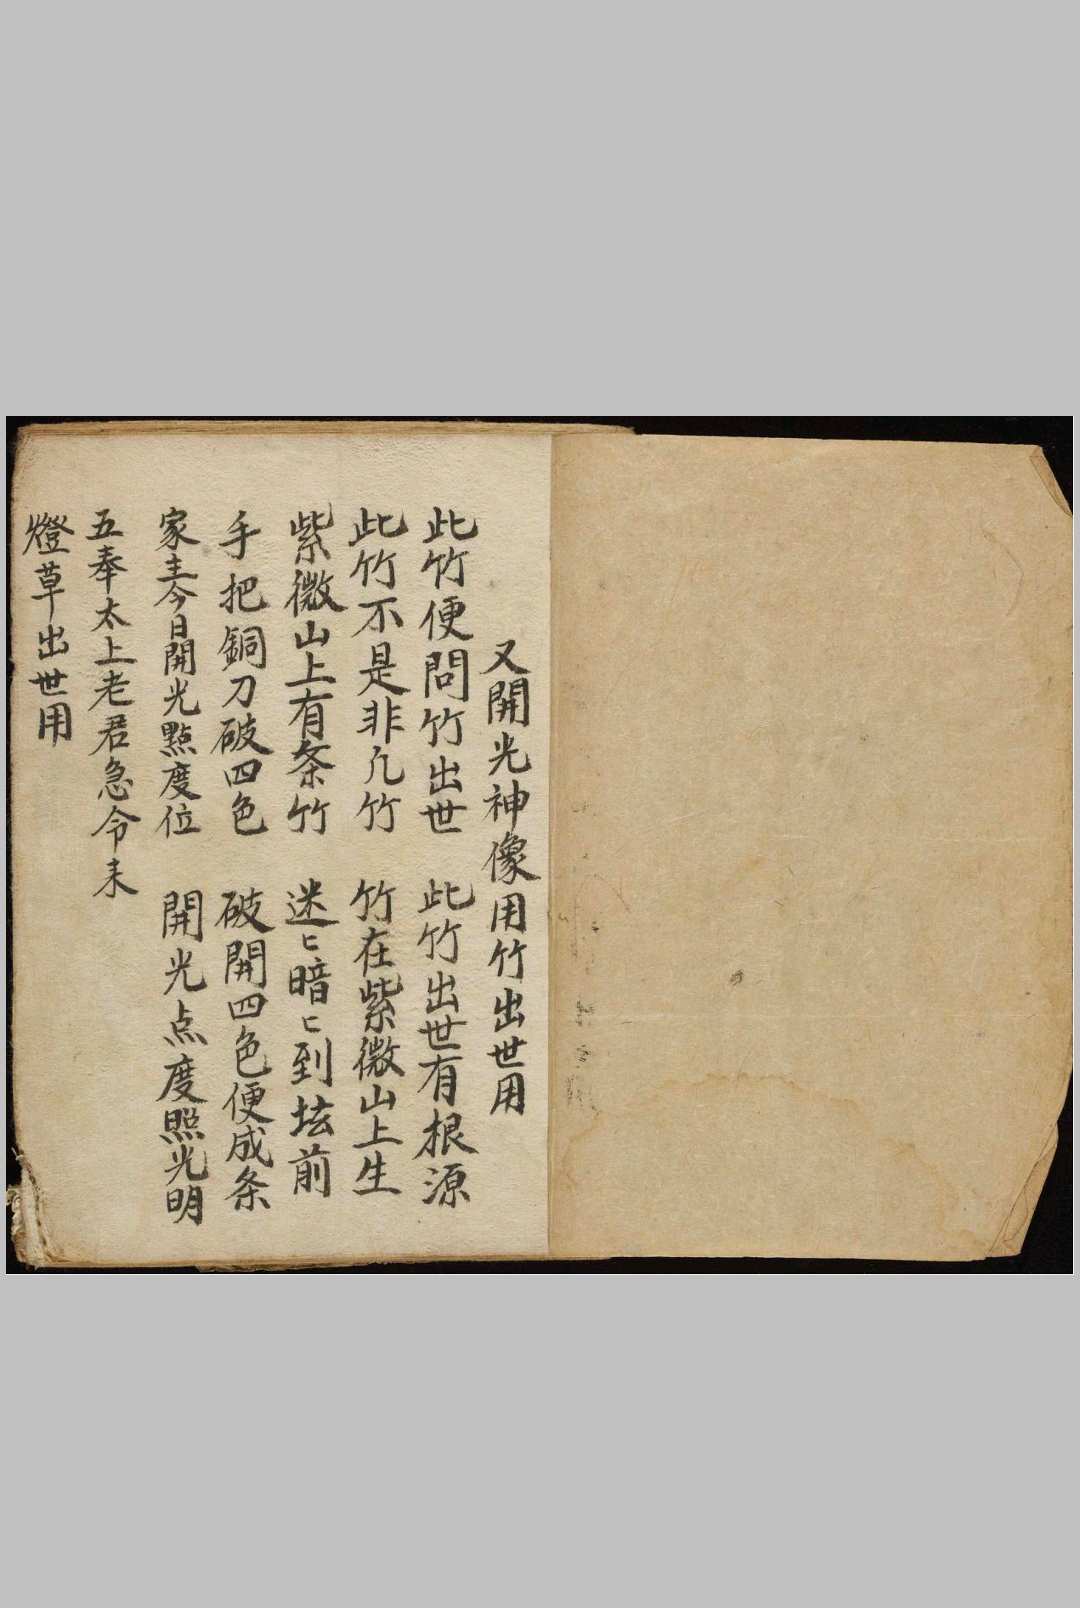 又開光神像用竹出世用
此竹便問竹出世 此竹出世有根源
此竹不是非凡竹 竹在紫微山上生
紫微山上有条竹 迷〻暗〻到坛前
手把銅刀破四色 破開四色便成条
家主今日開光點度位 開光点度照光明
五奉太上老君急令未
燈草出世用